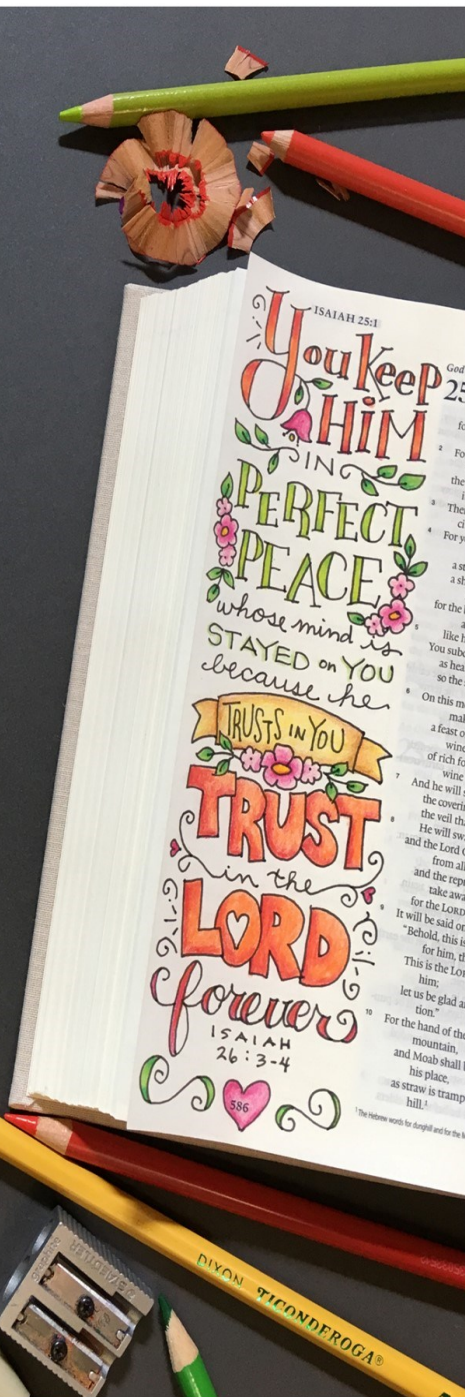 ISAIAH 25:1
You Keep
HiM
IN
PERFECT
PEACE
whose mind is
STAYED on YOU
because he
TRUSTS IN YOU
TRUST
in the
LORD
forever
ISAIAH
26:3-4
586
God
25
2 Fo
the
3
4 For y
a st
a sh
for the
5
like h
You subd
as hea
so the
6 On this m
a feast o
wine
of rich fo
wine
7 And he will s
the coverin
the veil tha
8 He will swa
and the Lord
from all
and the repr
take awa
for the LORD
9 It will be said on
"Behold, this is
for him, th
This is the Lor
him;
let us be glad a
tion."
10 For the hand of the
mountain,
and Moab shall b
his place,
as straw is tramp
hill.¹
¹ The Hebrew words for dunghill and for the M
DIXON TICONDEROGA®
STAEDTLER